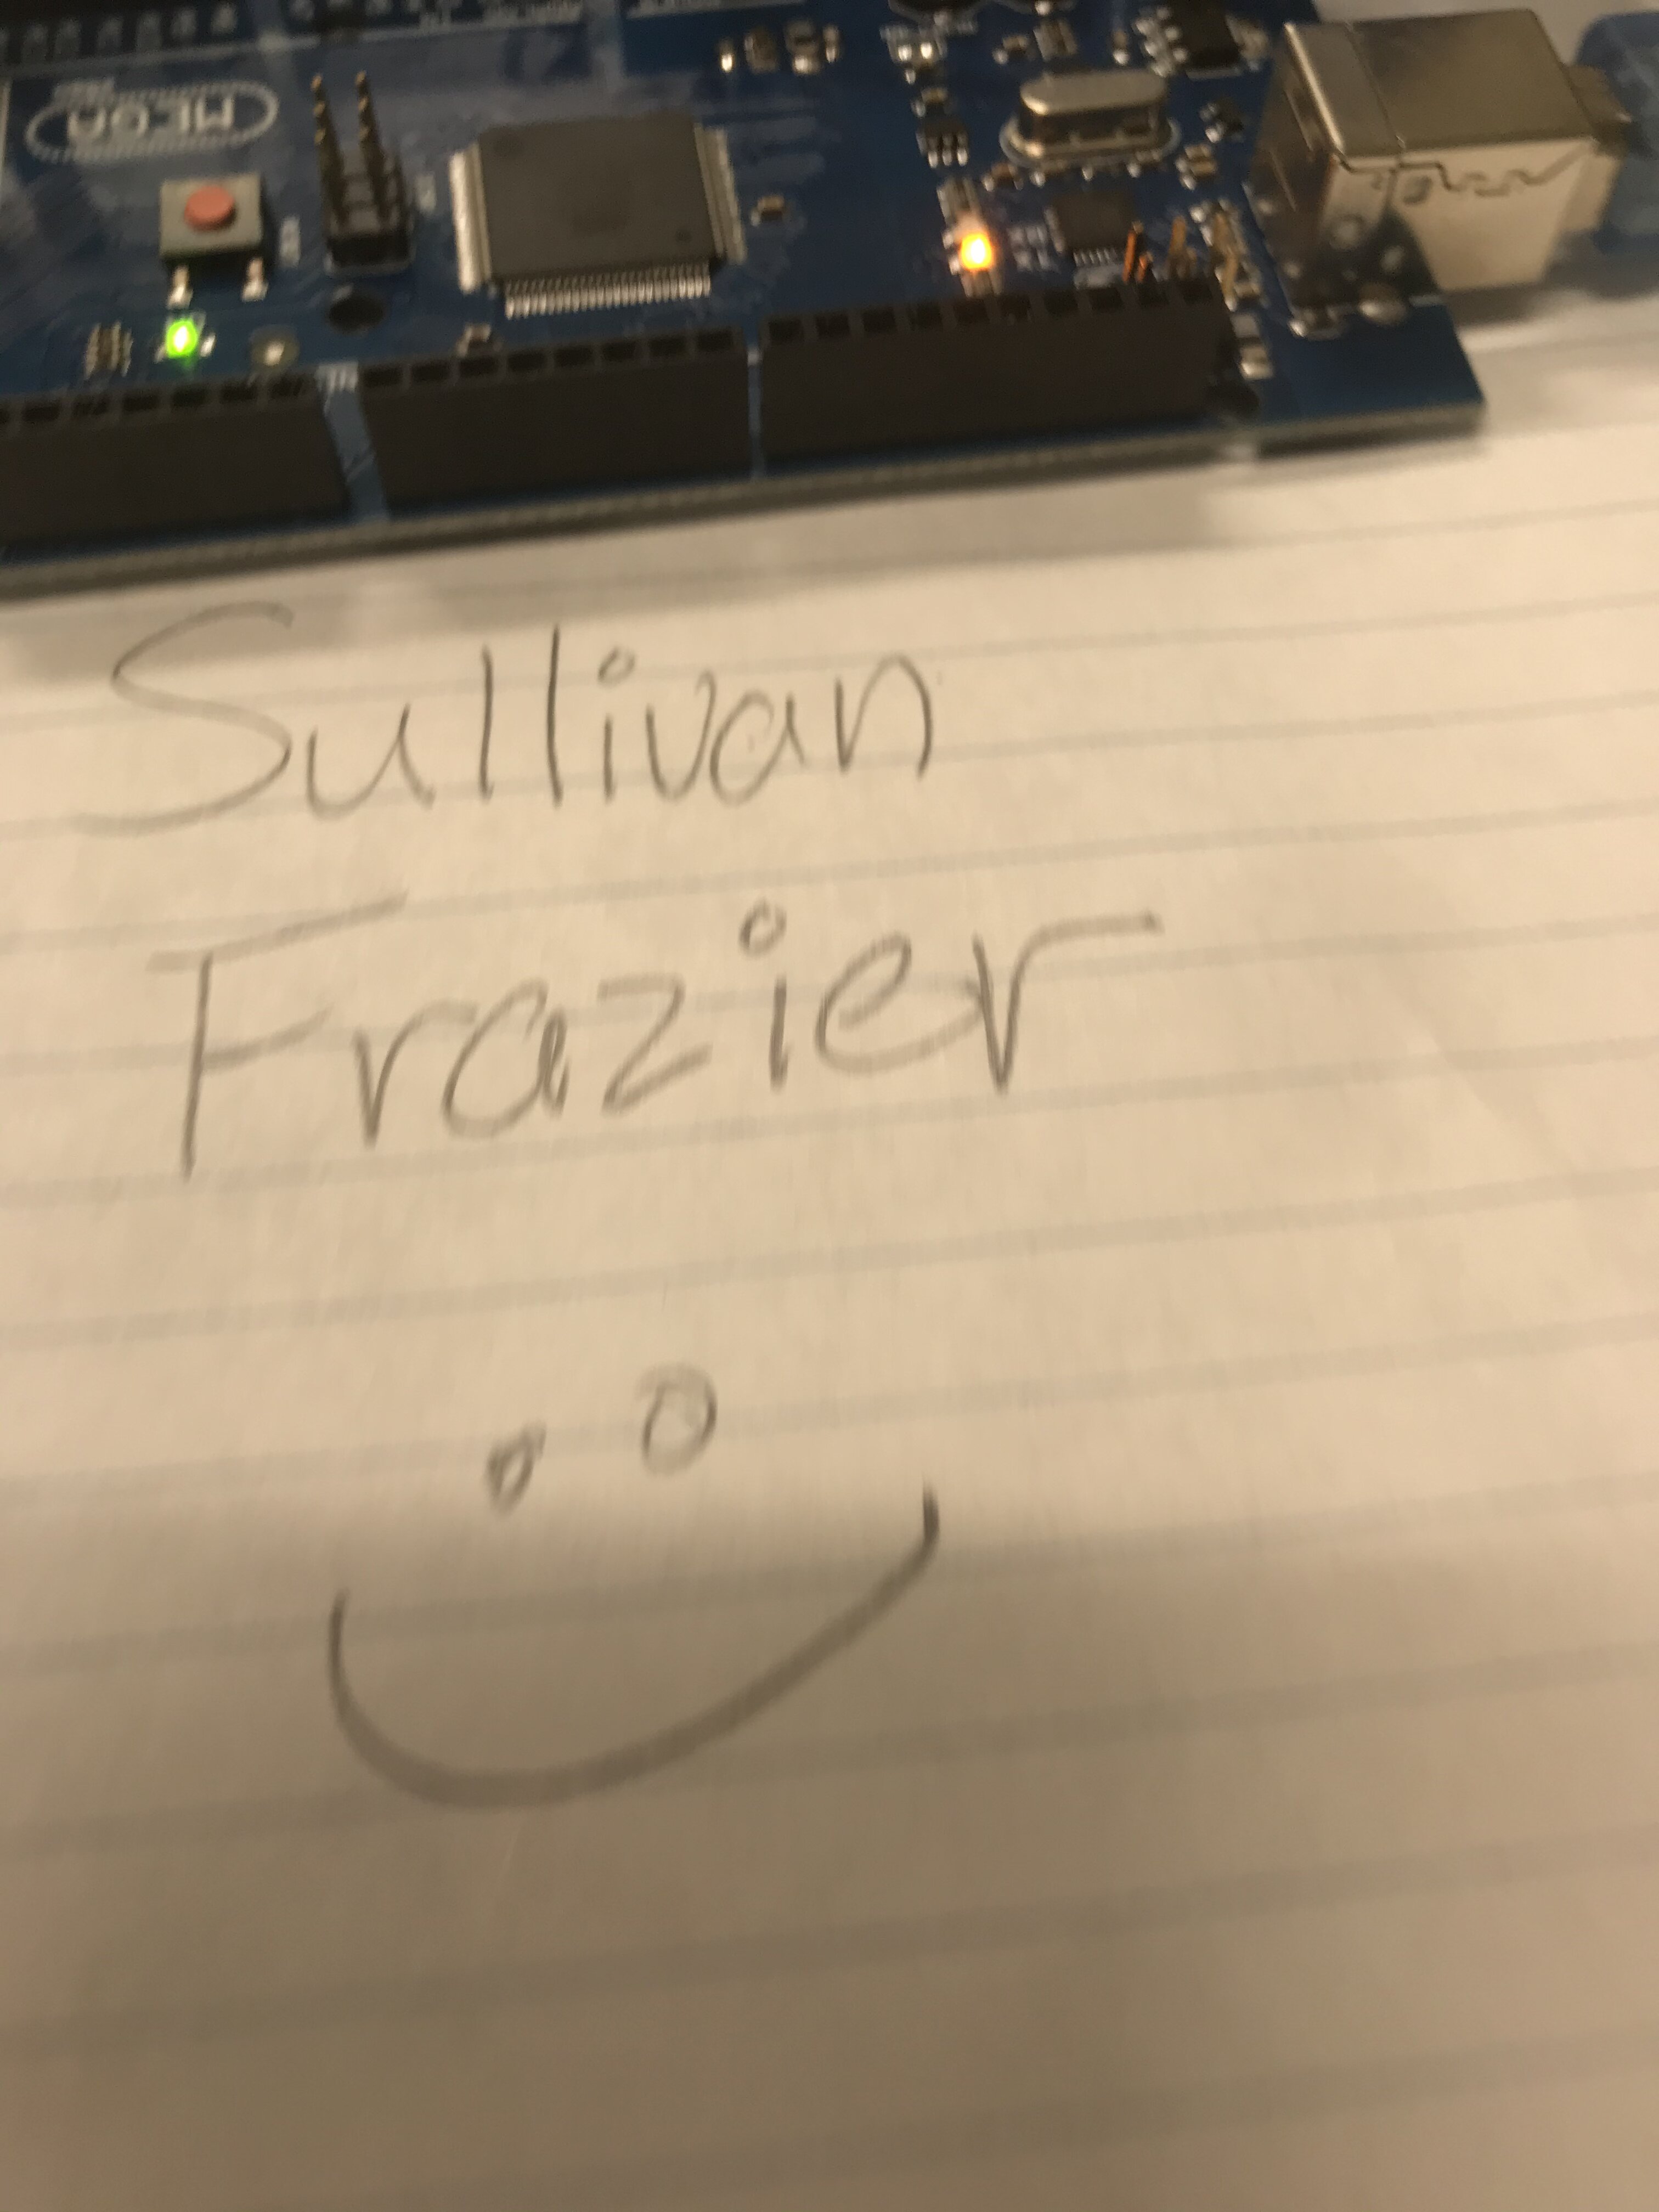 MEGA
Sullivan
Frazier